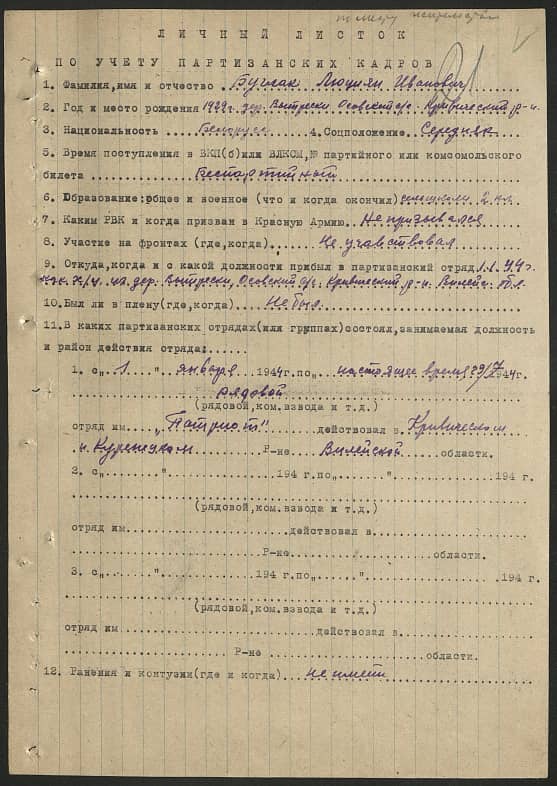 по месту жительства
ЛИЧНЫЙ ЛИСТОК
ПО УЧЕТУ ПАРТИЗАНСКИХ КАДРОВ
1. Фамилия,имя и отчество .. Бучак Люциян Иванович
2. Год и место рождения 1929г. дер. Выпрески, Осовского с/с. Кривический р-н.
3. Национальность .... Белорус .... 4.Соцположение. Середняк
5. Время поступления в ВКП(б)или ВЛКСМ,№ партийного или комсомольского
билета .......... Беспартийный
6. Образование:общее и военное (что и когда окончил) 2 кл.
7. Каким РВК и когда призван в Красную Армию.. Не призывался
8. Участие на фронтах (где,когда)....... Не учавствовал
9. Откуда,когда и с какой должности прибыл в партизанский отряд 1.1.44г.
из дер. Выпрески, Осовский с/с. Кривический р-н. Вилейс. обл.
10.Был ли в плену(где,когда).... Не был
11.В каких партизанских отрядах(или группах)состоял,занимаемая должность
и район действия отряда:......
1. с„ 1 " января ..1944г.по„ настоящее время 29/7 1944г.
рядовой
(рядовой,ком.взвода и т.д.)
отряд им... „Патриот" ......действовал в. Кривическом
и Куренецком Р-не .... Вилейской .... области.
2. с„......."...............194 г.по„......"..............194 г.
(рядовой,ком.взвода и т.д.)
отряд им..........................действовал в.....................
...........................Р-не......................области.
3. с„......."...............194 г.по„......"..............194 г.
(рядовой,ком.взвода и т.д.)
отряд им..........................действовал в.....................
........................... Р-не ......................области.
12. Ранения и контузии(где и когда)... не имеет